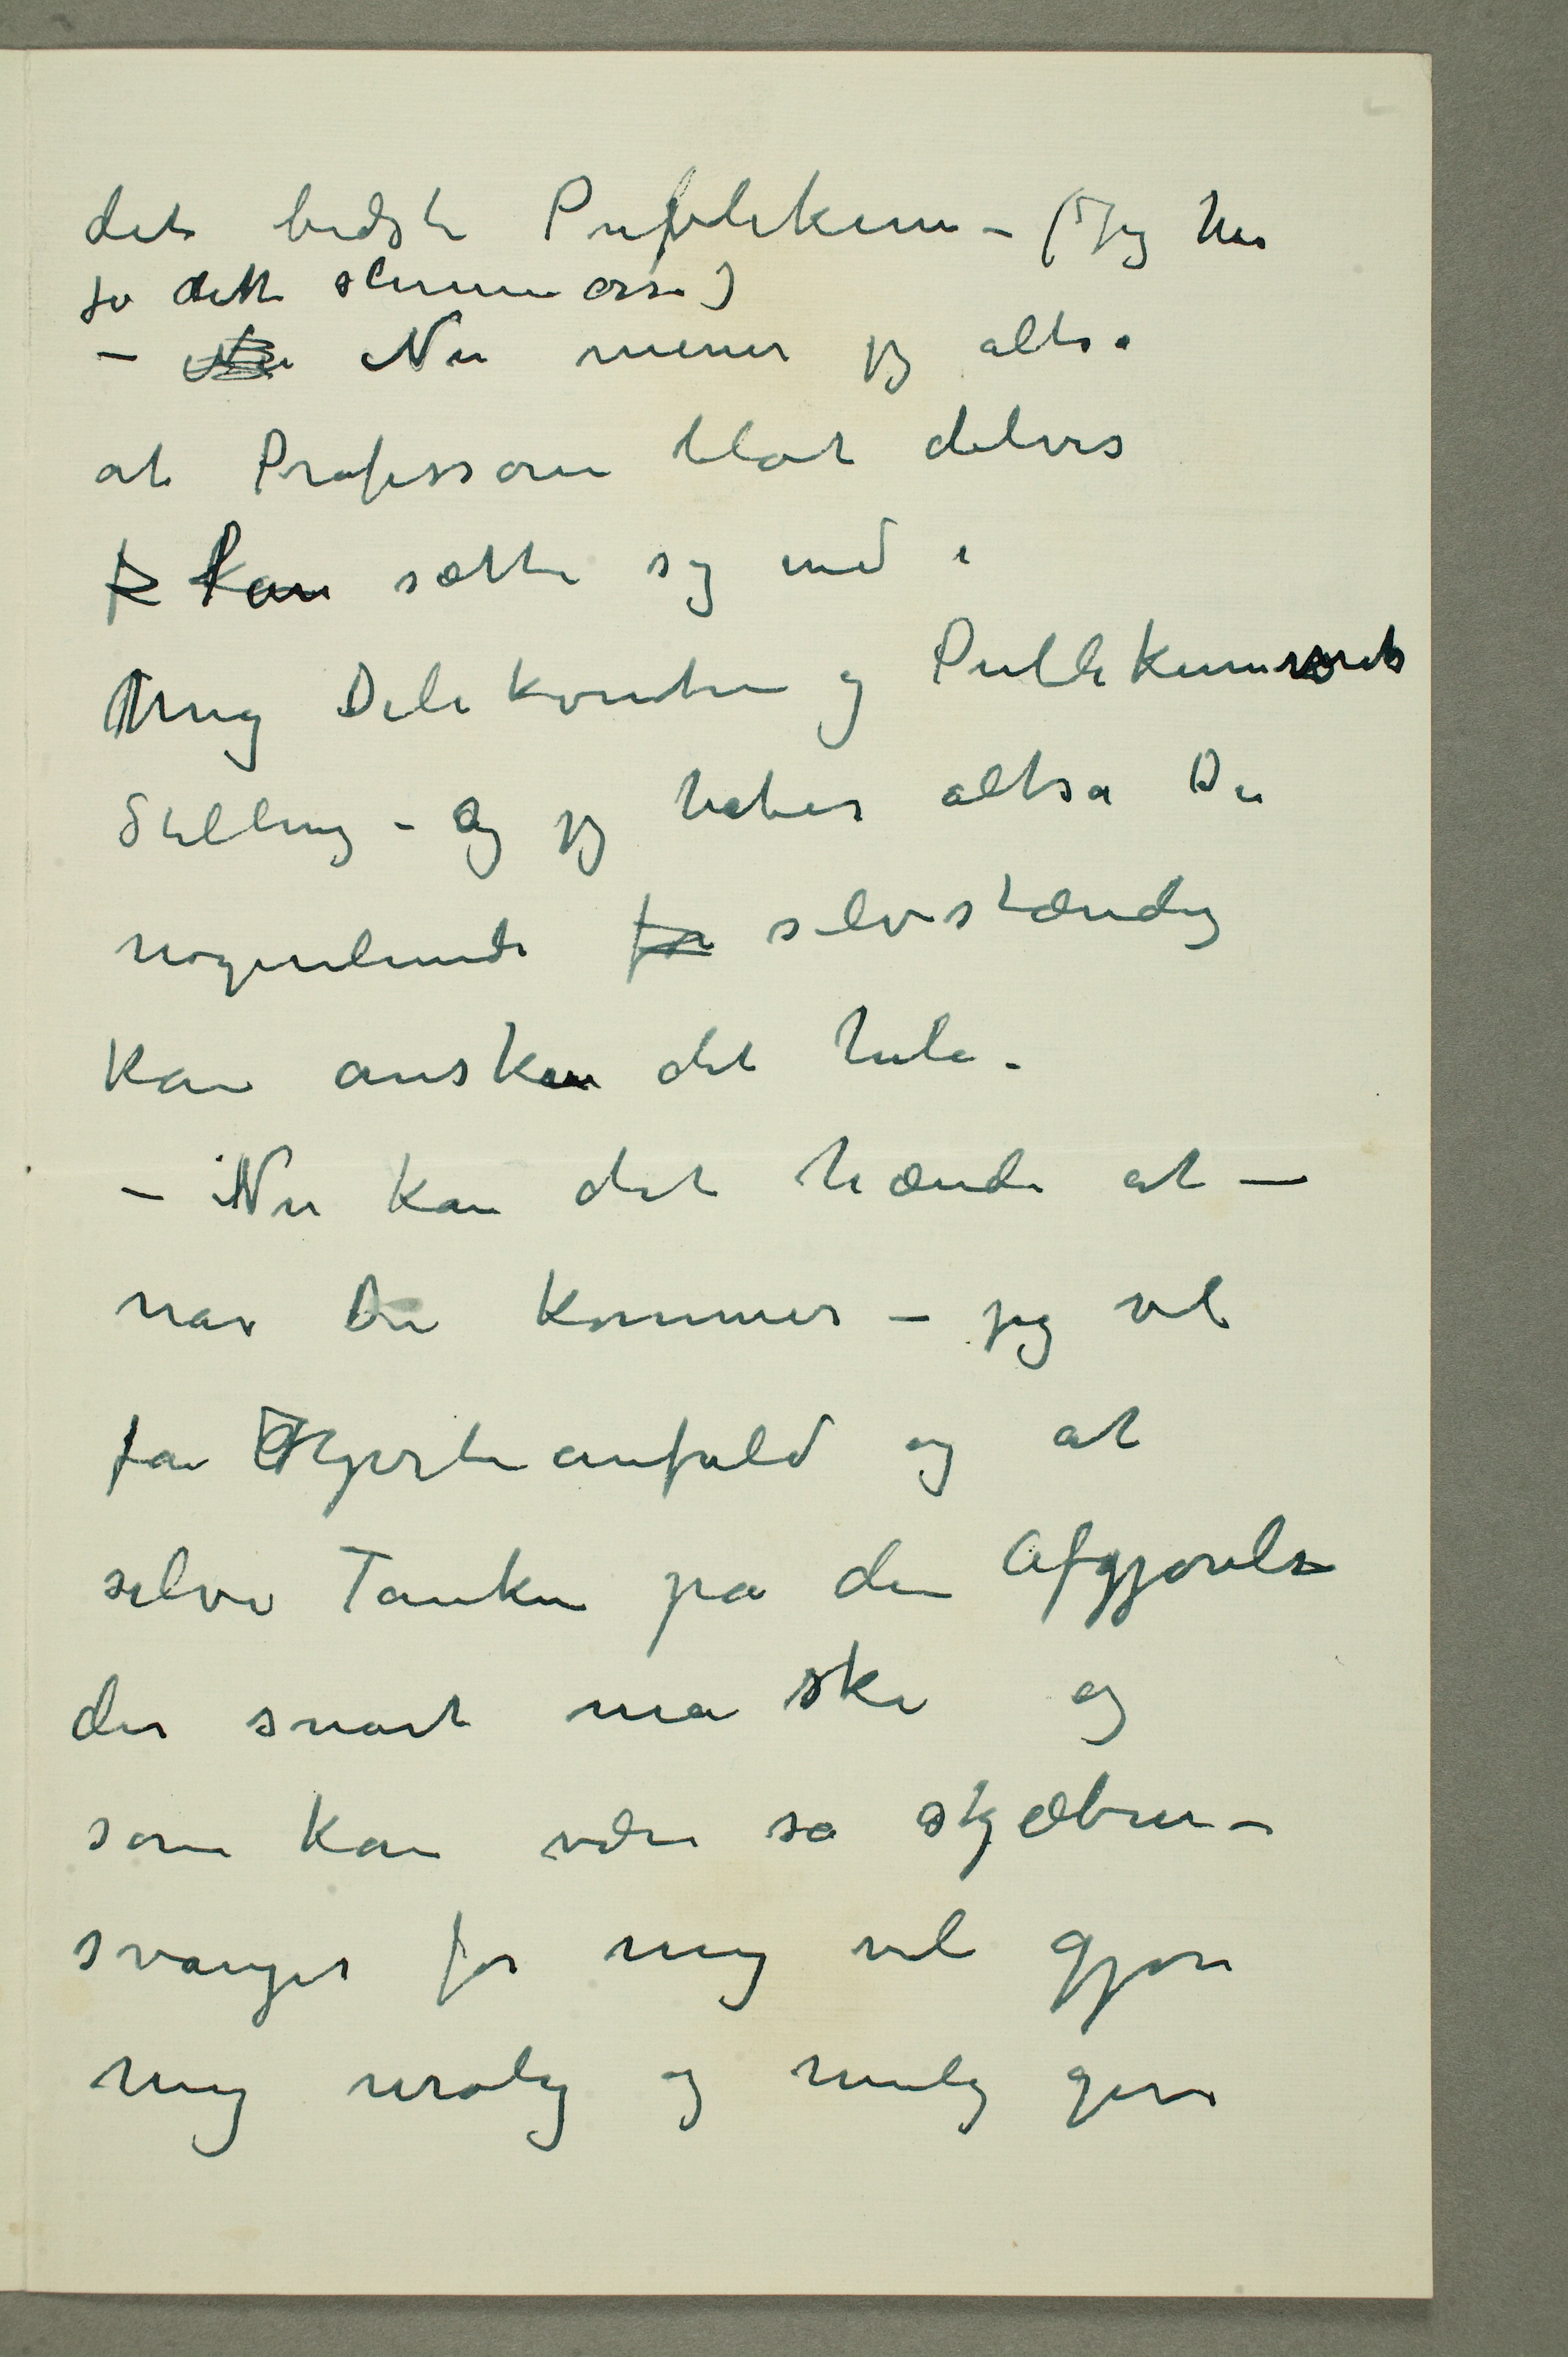 det bedste Publikum – (Jeg har
jo dette slemme også)
– Nu Nu mener jeg altså
at Professoren blot delvis
f kan sætte sig ind i
mig Delikventen og Publikummets
Stilling – Og jeg håber altså Du
nogenlunde for selvstændig
kan anskue det hele.
– Nu kan det hænde at –
når Du kommer – jeg vil
få Hjerteanfald og at
selve Tanken på den Afgjørelse
der snart må ske og
som kan være så skjæbne-
svanger for mig vil gjøre
mig urolig og mulig give